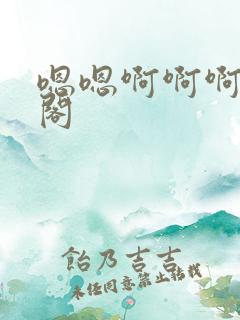 嗯嗯啊啊啊
閣
飴乃吉吉
未经同意禁止转载